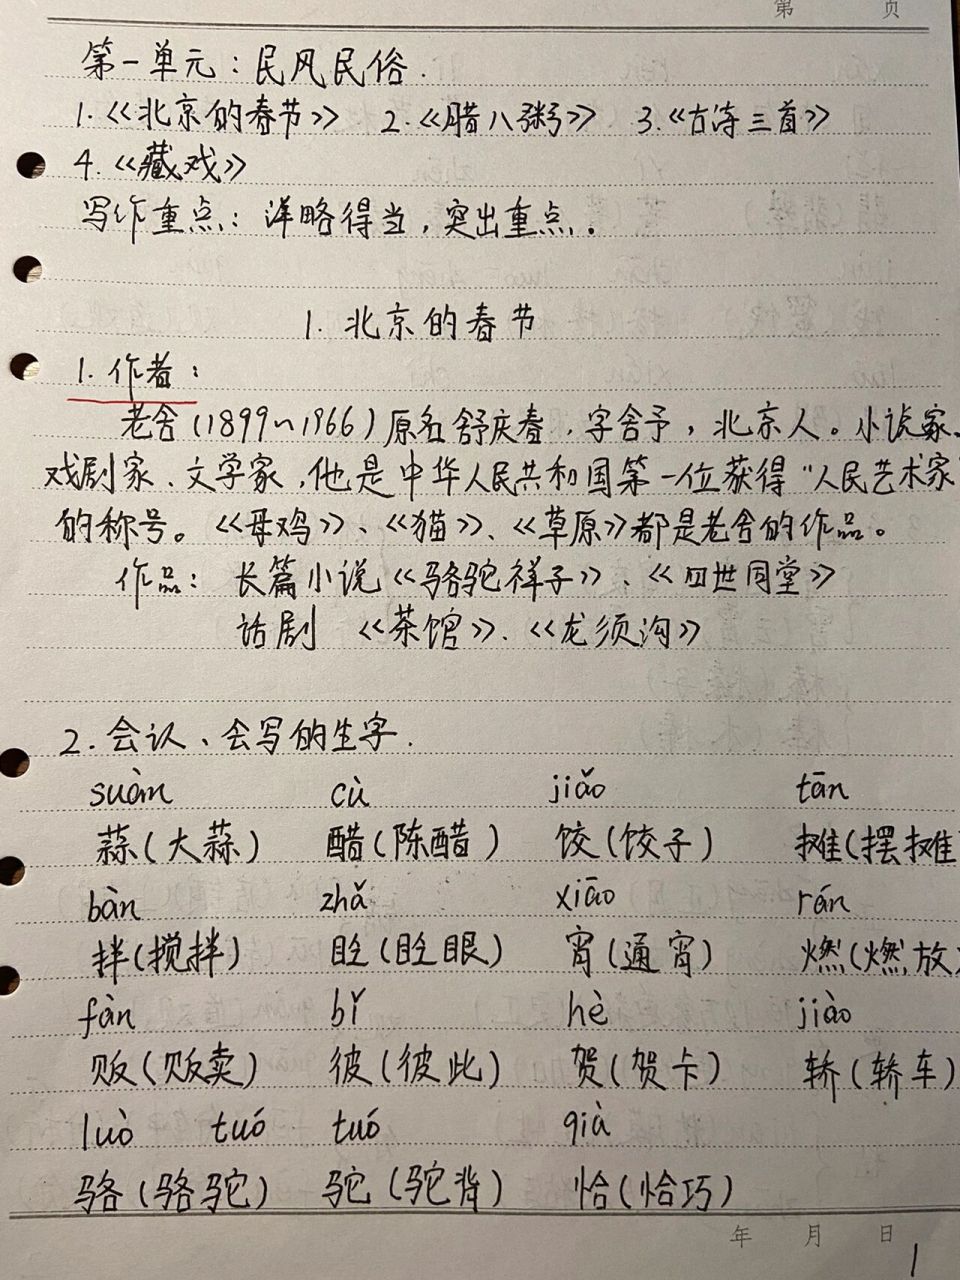 第 页
第一单元：民风民俗.
1.《北京的春节》 2.《腊八粥》 3.《古诗三首》
4.《藏戏》
写作重点：详略得当，突出重点。
1. 北京的春节
1. 作者：
老舍(1899~1966)原名舒庆春，字舍予，北京人。小说家、
戏剧家、文学家，他是中华人民共和国第一位获得“人民艺术家
的称号。《母鸡》、《猫》、《草原》都是老舍的作品。
作品：长篇小说《骆驼祥子》、《四世同堂》
话剧 《茶馆》、《龙须沟》
2. 会认、会写的生字.
suàn cù jiǎo tān
蒜(大蒜) 醋(陈醋) 饺(饺子) 摊(摆摊
bàn zhǎ xiāo rán
拌(搅拌) 眨(眨眼) 宵(通宵) 燃(燃放
fàn bǐ hè jiào
贩(贩卖) 彼(彼此) 贺(贺卡) 轿(轿车)
luò tuó tuó qià
骆(骆驼) 驼(驼背) 恰(恰巧)
年 月 日
1